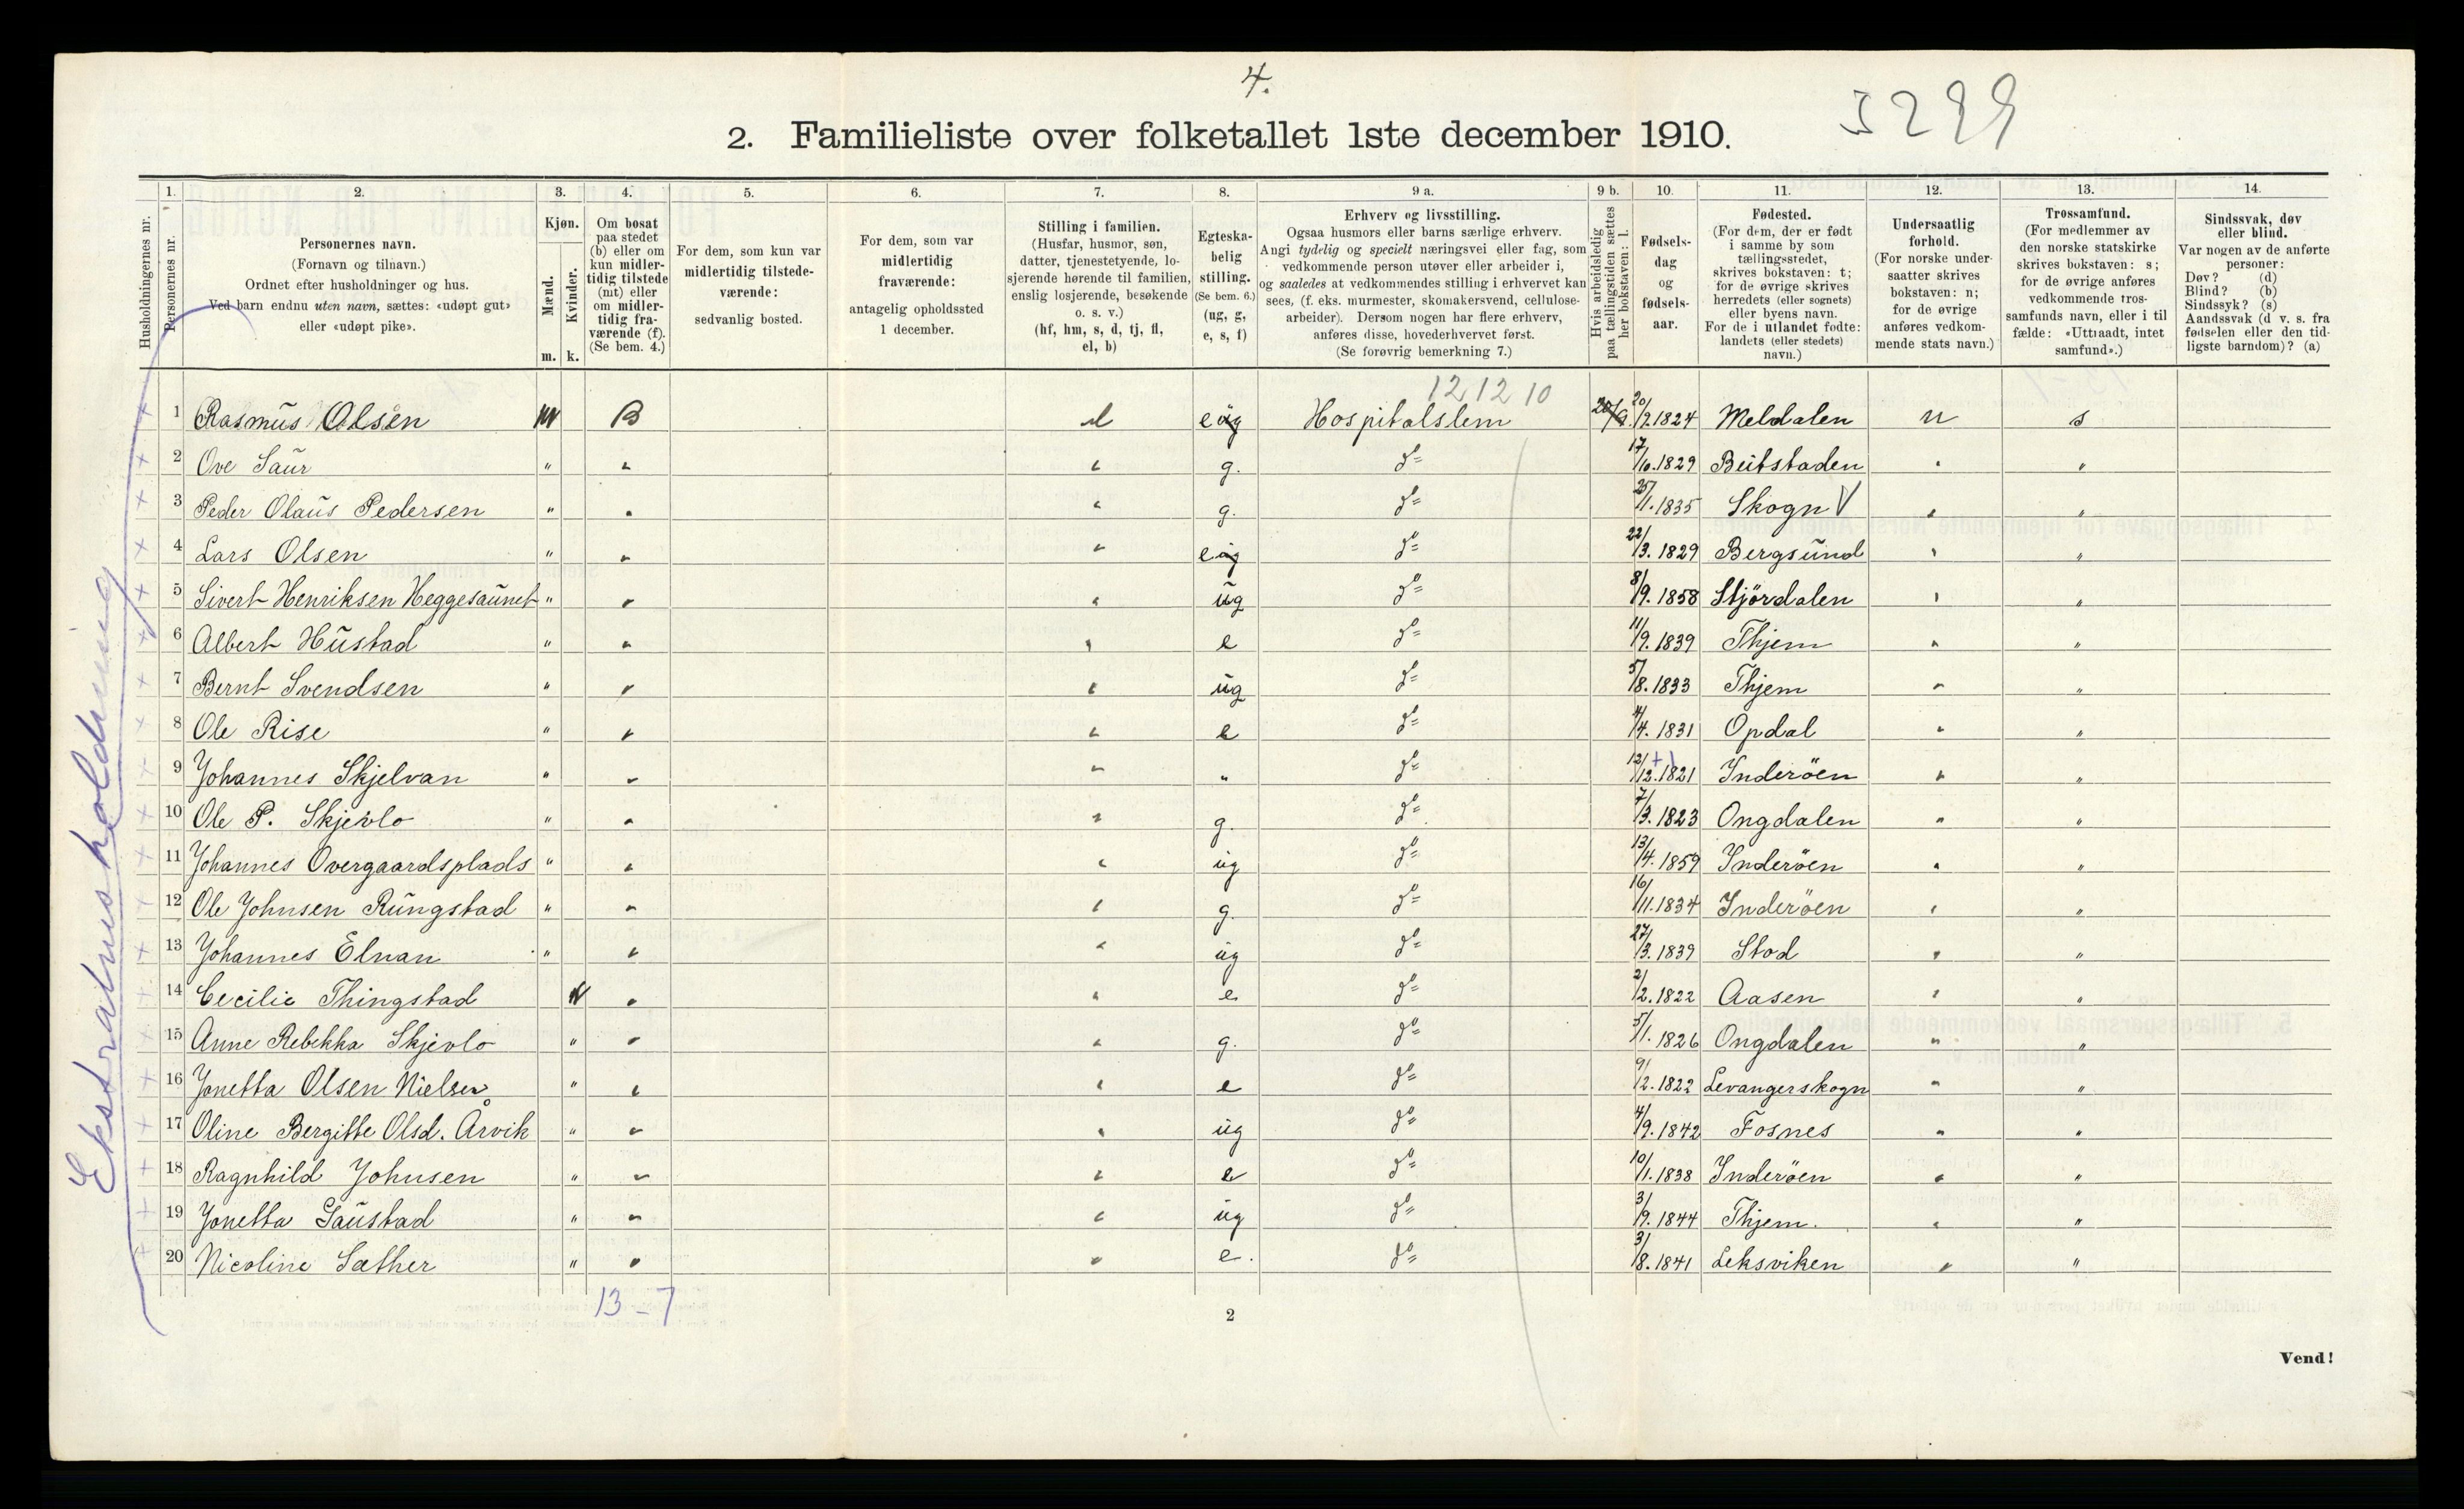 4.
2. Familieliste over folketallet 1ste december 1910.
5299
Husholdningernes nr.
1. Personernes nr.
2. Personernes navn. (Fornavn og tilnavn.) Ordnet efter husholdninger og hus. Ved barn endnu uten navn, sættes: «udøpt gut» eller «udøpt pike».
3. Kjøn. Mænd. m. Kvinder. k.
4. Om bosat paa stedet (b) eller om kun midlertidig tilstede (mt) eller om midlertidig fraværende (f). (Se bem. 4.)
5. For dem, som kun var midlertidig tilstedeværende: sedvanlig bosted.
6. For dem, som var midlertidig fraværende: antagelig opholdssted 1 december.
7. Stilling i familien. (Husfar, husmor, søn, datter, tjenestetyende, losjerende hørende til familien, enslig losjerende, besøkende o. s. v.) (hf, hm, s, d, tj, fl, el, b)
8. Egteskabelig stilling. (Se bem. 6.) (ug, g, e, s, f)
9 a. Erhverv og livsstilling. Ogsaa husmors eller barns særlige erhverv. Angi tydelig og specielt næringsvei eller fag, som vedkommende person utøver eller arbeider i, og saaledes at vedkommendes stilling i erhvervet kan sees, (f. eks. murmester, skomakersvend, cellulosearbeider). Dersom nogen har flere erhverv, anføres disse, hovederhvervet først. (Se forøvrig bemerkning 7.)
9 b. Hvis arbeidsledig paa tællingstiden sættes her bokstaven: l.
10. Fødselsdag og fødselsaar.
11. Fødested. (For dem, der er født i samme by som tællingsstedet, skrives bokstaven: t; for de øvrige skrives herredets (eller sognets) eller byens navn. For de i utlandet fødte: landets (eller stedets) navn.)
12. Undersaatlig forhold. (For norske undersaatter skrives bokstaven: n; for de øvrige anføres vedkommende stats navn.)
13. Trossamfund. (For medlemmer av den norske statskirke skrives bokstaven: s; for de øvrige anføres vedkommende trossamfunds navn, eller i tilfælde: «Uttraadt, intet samfund».)
14. Sindssvak, døv eller blind. Var nogen av de anførte personer: Døv? (d) Blind? (b) Sindssyk? (s) Aandssvak (d v. s. fra fødselen eller den tidligste barndom)? (a)
12 12 10
Ekstrahusholdning
× 1 Rasmus Olsen m B el e ug Hospitalslem 20/9. 20/9.1824 Meldalen n s
× 2 Ove Saur " " " g. do 17/10.1829 Beitstaden " "
× 3 Peder Olaus Pedersen " " " g. do 25/1.1835 Skogn V " "
× 4 Lars Olsen " " " e ug do 22/3.1829 Bergsund " "
× 5 Sivert Henriksen Heggesaunet " " " ug do 8/9.1858 Stjördalen " "
× 6 Albert Hustad " " " e do 11/9.1839 Thjem " "
× 7 Bernt Svendsen " " " ug do 5/8.1833 Thjem " "
× 8 Ole Rise " " " e do 4/4.1831 Opdal " "
× 9 Johannes Skjelvan " " " " do 12/12.1821 Inderöen " "
× 10 Ole P. Skjevlo " " " g. do 7/3.1823 Ongdalen " "
× 11 Johannes Overgaardsplads " " " ug do 13/4.1859 Inderöen " "
× 12 Ole Johnsen Rungstad " " " g. do 16/11.1834 Inderöen " "
× 13 Johannes Elnan " " " ug do 27/3.1839 Stod " "
× 14 Cecilie Thingstad k " " e do 2/2.1822 Aasen " "
× 15 Anne Rebekka Skjevlo " " " g. do 5/1.1826 Ongdalen " "
× 16 Jonetta Olsen Nielsen " " " e do 9/12.1822 Levangerskogn " "
× 17 Oline Bergitte Olsd. Årvik " " " ug do 4/9.1842 Fosnes " "
× 18 Ragnhild Johnsen " " " e do 10/1.1838 Inderöen " "
× 19 Jonetta Saustad " " " ug do 3/9.1844 Thjem. " "
× 20 Nicoline Sæther " " " e. do 3/8.1841 Leksviken " "
13 - 7
2
Vend!